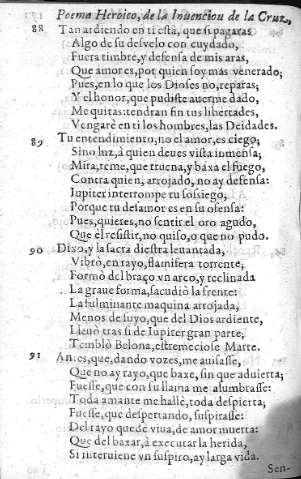 Poema Heroico, de la Inuencion de la Cruz,
88 Tan ardiendo en ti està, que si pagaras
Algo de su desvelo con cuydado,
Fuera timbre, y defensa de mis aras,
Que amores, por quien soy mas venerado;
Pues, en lo que los Dioses no, reparas;
Y el honor, que pudiste auerme dado,
Me quitas: tendran fin tus libertades,
Vengarè en ti los hombres, las Deidades.
89 Tu entendimiento, no el amor, es ciego;
Sino luz, à quien deues vista inmensa;
Mira, teme, que truena, y baxa el fuego,
Contra quien, arrojado, no ay defensa:
Iupiter interrompe tu sossiego,
Porque tu desamor es en su ofensa:
Pues, quieres, no sentir el oro agudo,
Que el resistir, no quiso, o que no pudo.
90 Dixo, y la sacra diestra leuantada,
Vibrò, en rayo, flamifera torrente;
Formò del braço vn arco, y reclinada
La graue forma, sacudiò la frente:
La fulminante maquina arrojada,
Menos de suyo, que del Dios ardiente,
Lleuò tras si de Iupiter gran parte,
Temblò Belona, estremeciose Marte.
91 Antes, que, dando vozes, me auisasse,
Que no ay rayo, que baxe, sin que aduierta;
Fuesse, que con su llama me alumbrasse:
Toda amante me hallè, toda despierta;
Fuesse, que despertando, suspirasse:
Del rayo quedè viua, de amor muerta:
Que del baxar, à executar la herida,
Si interuiene vn suspiro, ay larga vida.
Sen-